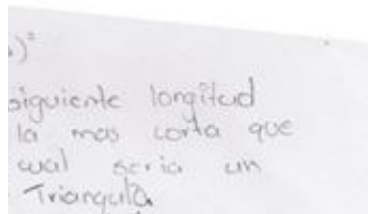 )²
siguiente longitud
la mas corta que
cual seria un
Triangulo